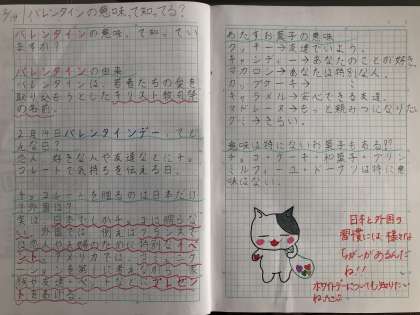 バレンタインの意味、て知ってる?
バレンタインの意味、て知ってい
ますか?
バレンタインの由来
バレンタインは、若者たちの愛を
取り
キリスト教の
の名前。
2月14日バレンタインデー、てど
んな日?
恋人、好きな人や友達などにチョ
コレートで気持ちを伝える日。
チョコレートを贈るのは日本だけ
実は、日本でしかチョコは贈らな
い。外国では、例えばフランスで
は
アメリカでは、
プレゼント
をあげる。
わたすお菓子の意味
クッキー→友達でいよう。
キャンディー→あなたのことが好き。
マカロン→あなたは特別な人。
カップケーキ→
キャラメル→安心できる友達。
マドレーヌ→もっと親みつになりたい
グミ→きらい。
意味は特にないお菓子もある??
チョコ・ケーキ・和菓子・プリン
ミルフィーユ・ドーナツは特に意
味はない。
日本と外国の
習慣には様々な
ちがいがあるんだ
ね!!
ホワイトデーについても知りたい